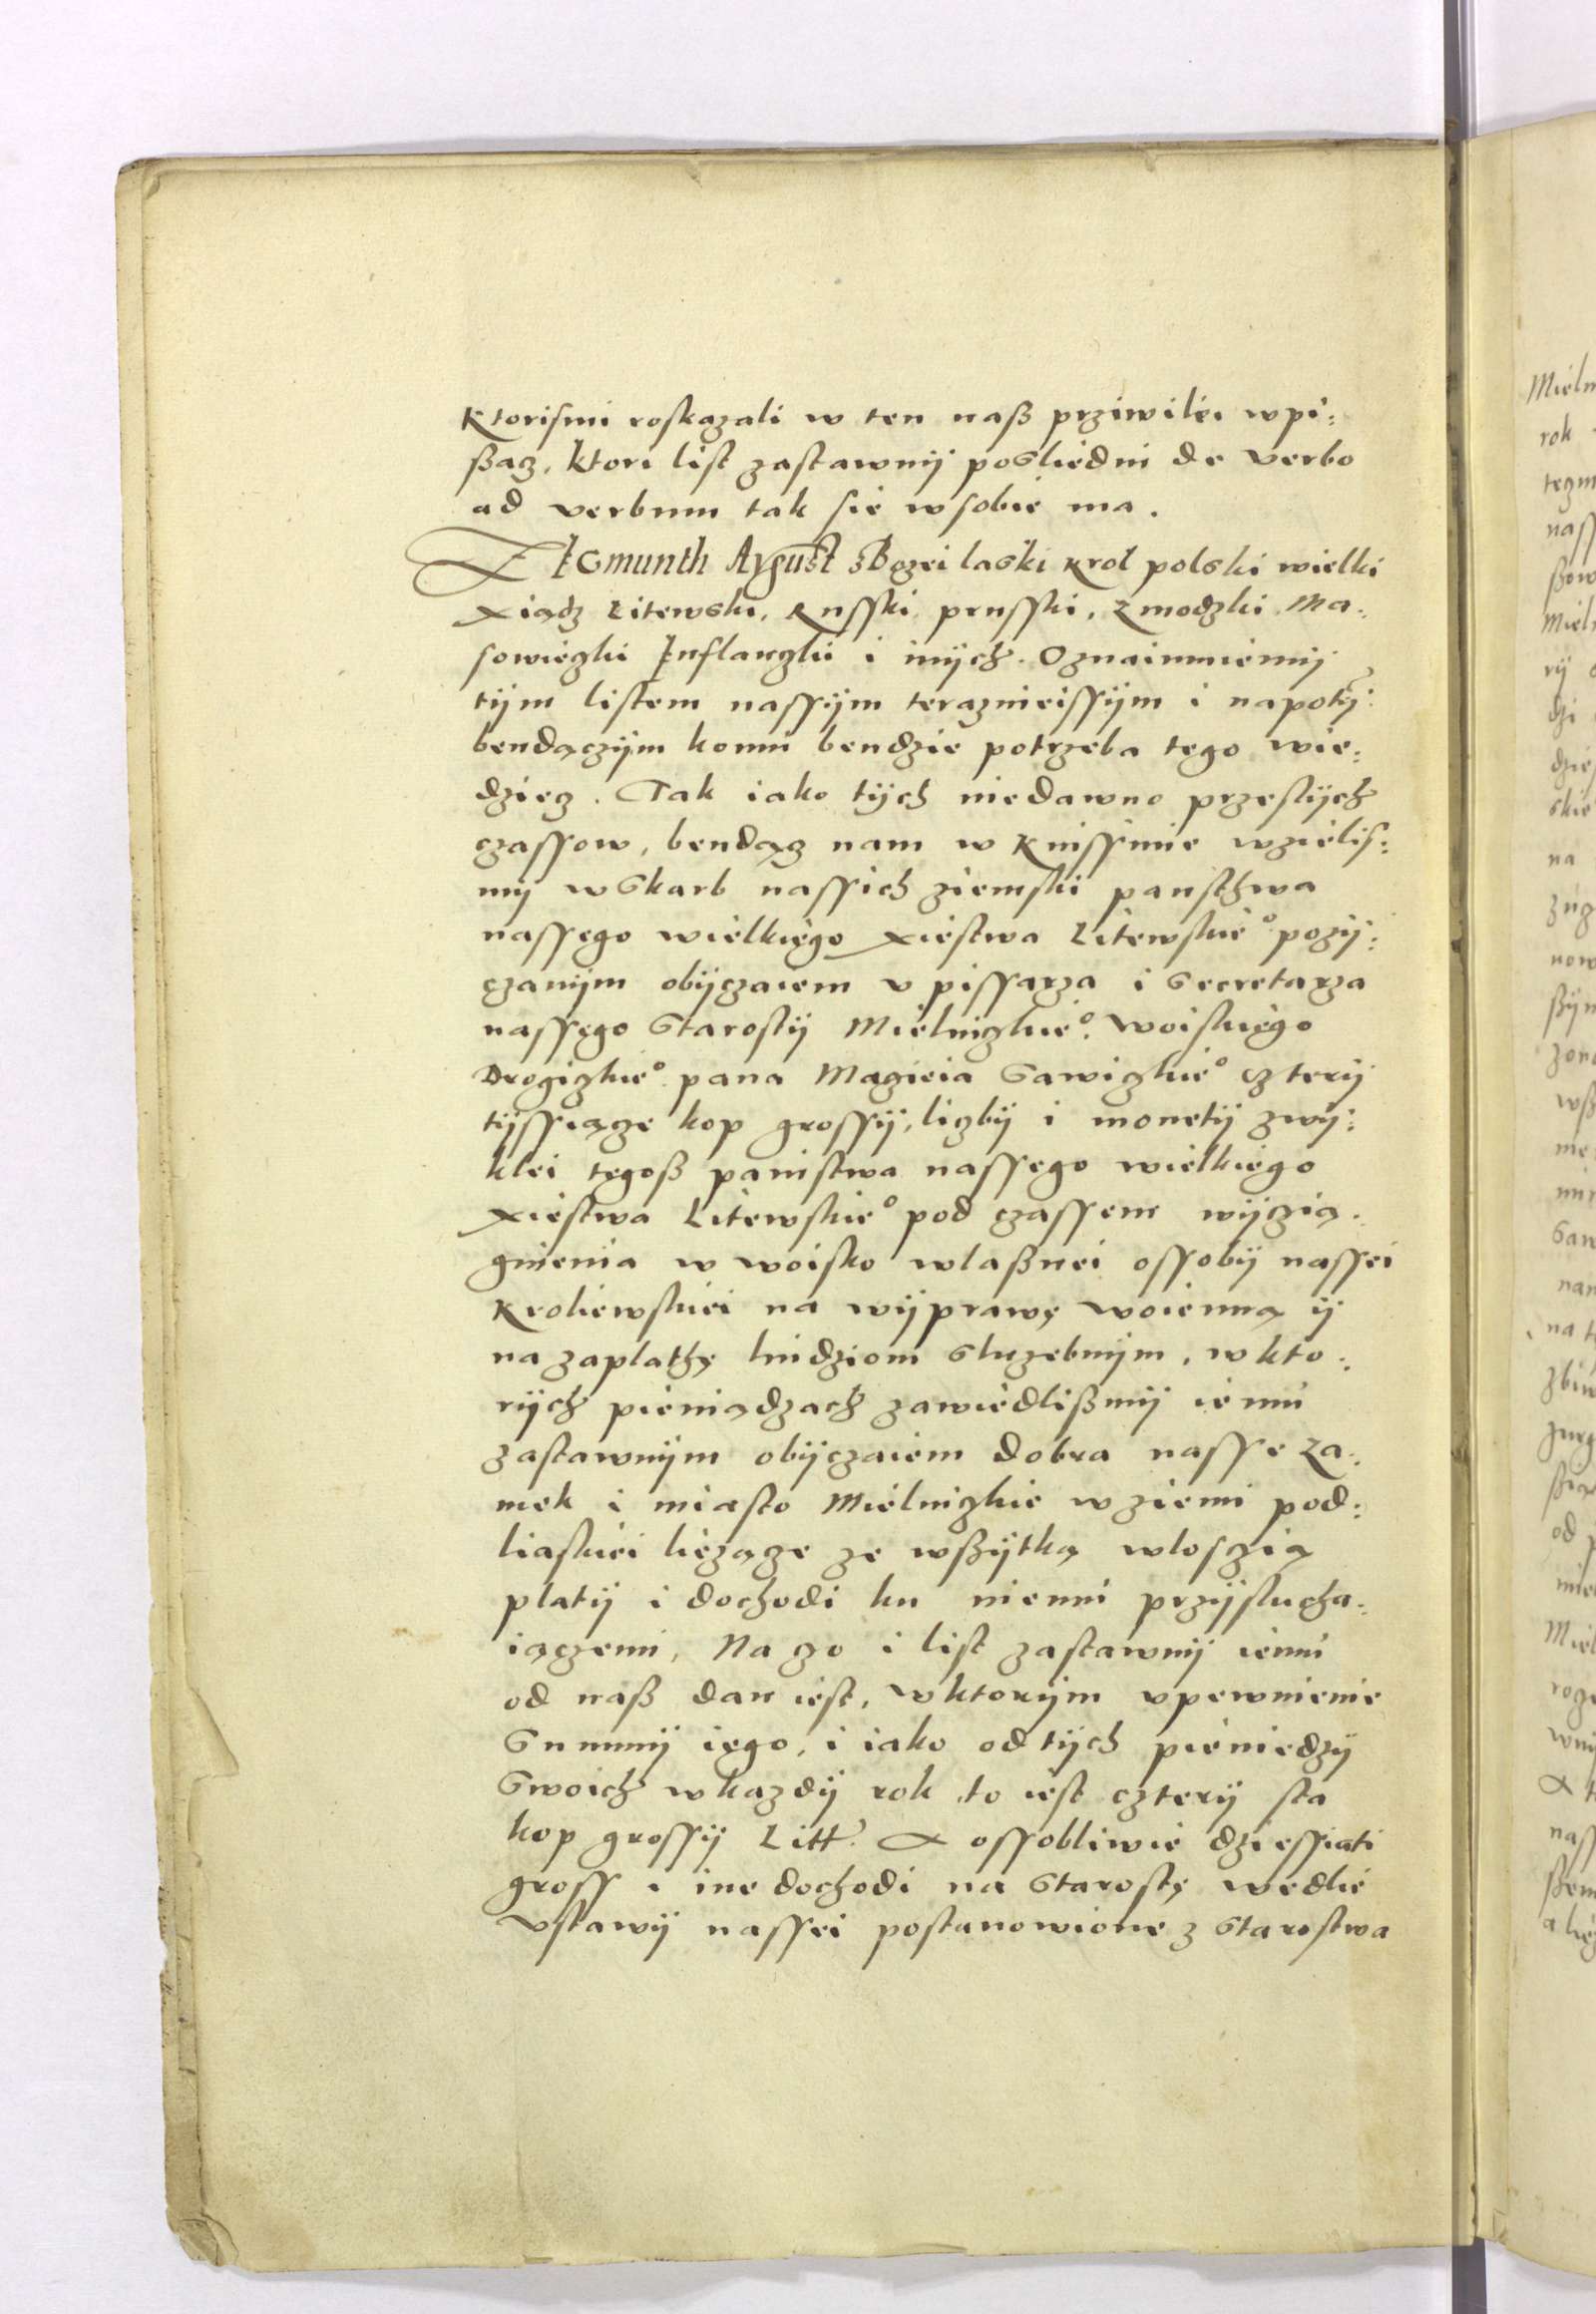 Ktorismi roskazali w ten naß prziwilei wpi:
ßacz, ktori list zastawnÿ posliedni de verbo
ad verbum tak sie w sobie ma.
ZIGmunth August z Bozei laski krol polski wielki
Xiądz Litewski, Russki prusski, Zmodzki Ma:
sowiezki Inflanzki i inÿch. Oznaimuiemÿ
tÿm listem nassÿm teraznieissÿm i napotÿ:
bendączÿm komu bendzie potrzeba tego wie:
dziecz. Tak iako tÿch niedawno przeslÿch
czassow, bendącz nam w Knissinie wzielis:
mÿ w skarb nassich ziemski pansthwa
nassego wielkiego Xiestwa Litewskieº pozÿ:
czanÿm obÿczaiem v pissarza i Secretarza
nassego Starostÿ Mielnizkieº. woiskiego
Drogizkieº pana Macieia Sawizkieº czterÿ
tÿssiącze kop grossÿ, liczbÿ i monetÿ zwÿ:
klei tegoß panistwa nassego wielkiego
Xiestwa Litewskieº pod czassem wÿczią:
gnienia w woisko wlaßnei ossobÿ nassei
Kroliewskiei na wÿprawę woienną ÿ
na zaplathę liudziom sluzebnÿm, w kto:
rÿch pieniądzach zawiedlißmÿ iemu
zastawnÿm obÿczaiem dobra nasse Za:
mek i miasto Mielnizkie w ziemi pod:
liaskiei liezącze ze wßÿtką wlosczią
platÿ i dochodi ku niemu przÿslucha:
iączemi, Na czo i list zastawnÿ iemu
od naß dan iest, w ktorÿm vpewnienie
Summÿ iego, i iako od tÿch pieniedzÿ
Swoich w kazdÿ rok to iest czterÿ sta
kop grossÿ Litt. A ossobliwie dziessiati
gross i ine dochodi na Starostę wedlie
vstawÿ nassei postanowione z Starostwa